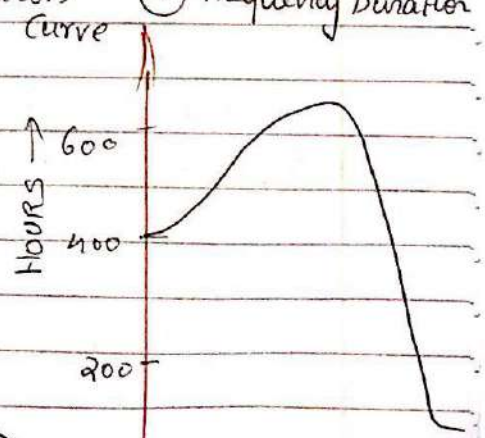 Frequency Duration
Curve
HOURS →
600
400
200